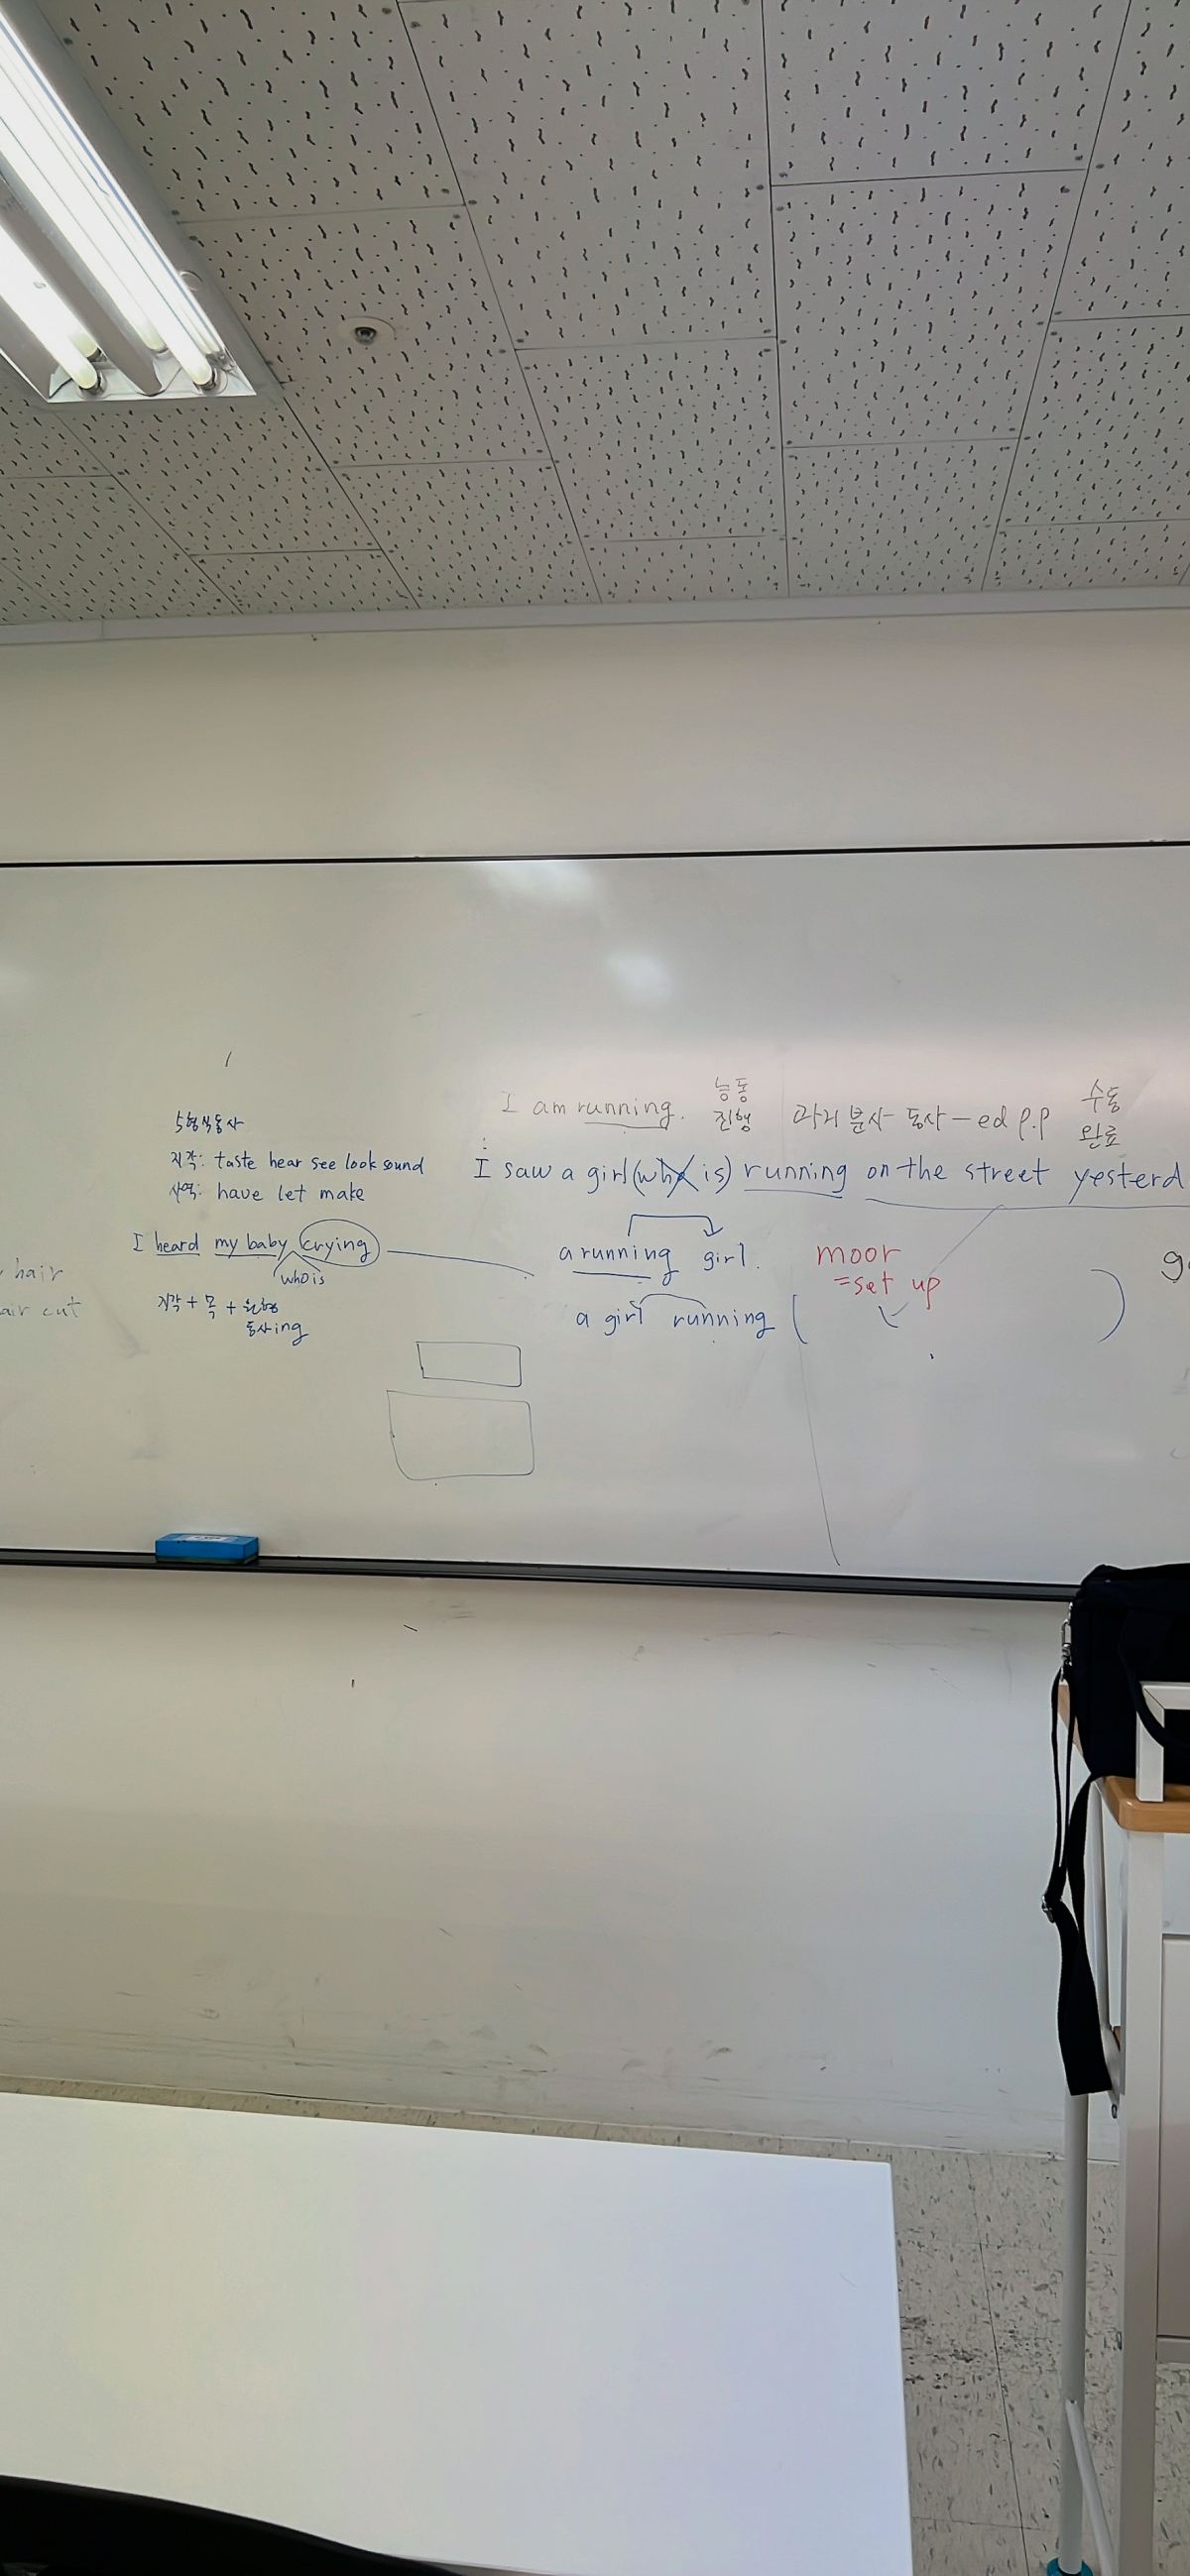 5형식동사
지각: taste hear see look sound
사역: have let make
I heard my baby crying
who is
지각 + 목 + 원형
동사ing
hair
air cut
I am running. 능동
진행
과거분사 동사-ed p.p 수동
완료
I saw a girl (who is) running on the street yesterd
a running girl.
a girl running ( )
moor
=set up